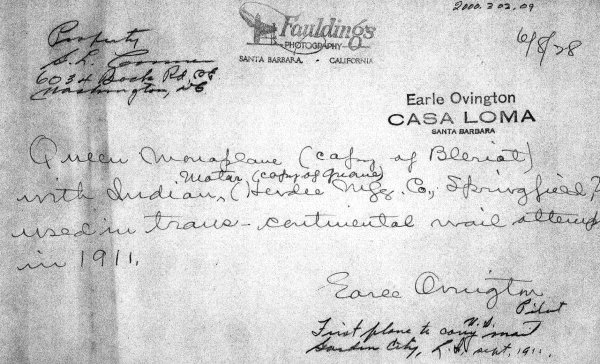 2000.3 02.09
Fauldings
PHOTOGRAPHY
SANTA BARBARA, - CALIFORNIA
6/8/28
Property
6034 Rd.
Washington, DC
Earle Ovington
CASA LOMA
SANTA BARBARA
Queen Monoplane (copy of Bleriot)
Motor (copy of Gnome)
with Indian, (Hendee Mfg. Co., Springfield?
used in trans-continental mail attempt
in 1911.
Earle Ovington
Pilot
First plane to carry U.S. mail
Garden City, L.I. Sept. 1911.